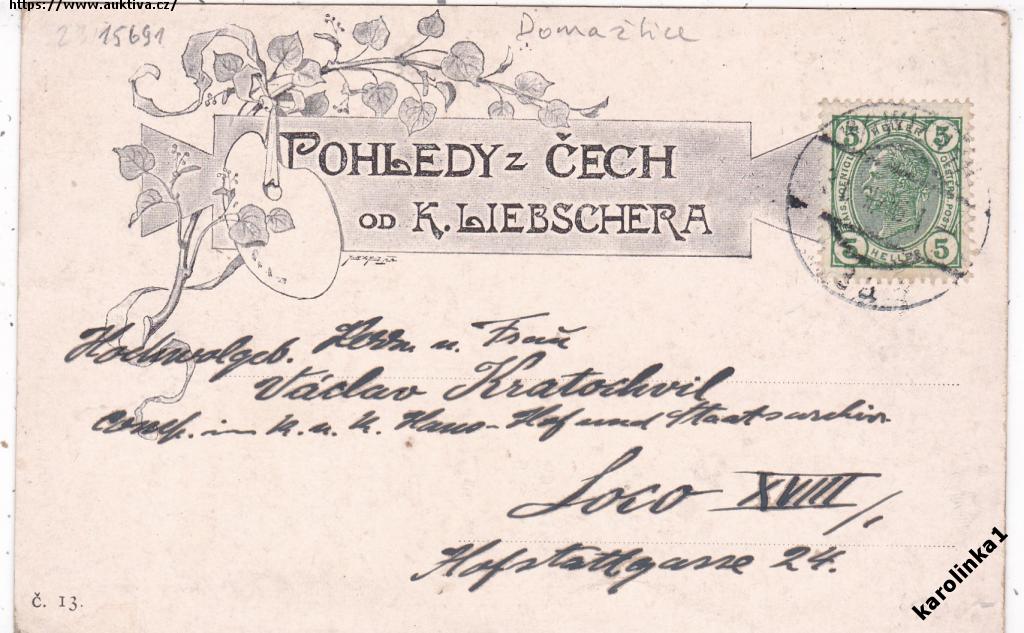 https://www.auktiva.cz/
15691
Domažlice
POHLEDY z ČECH
OD K. LIEBSCHERA
5 HELLER 5
5 HELLER 5
Hochwolgeb. Herrn u. Frau
Václav Kratochvil
Consp. im K. u. k. Haus-Hof und Staatsarchiv
Loco XVIII/1.
Hofstattgasse 24.
č. 13.
karolinka1